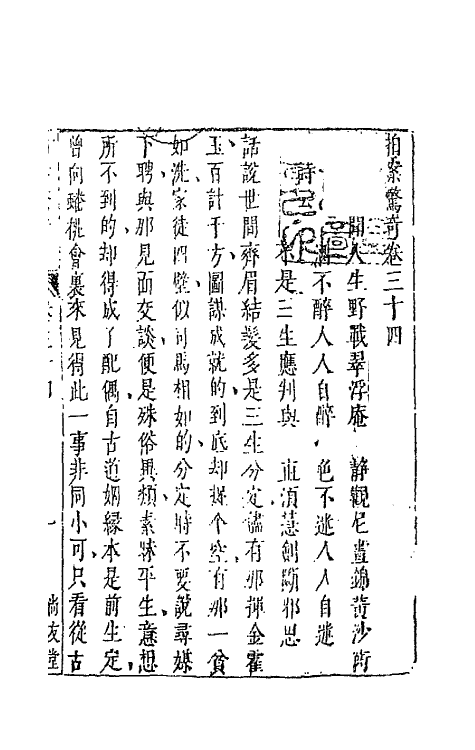 拍案驚奇卷三十四
聞人生野戰翠浮庵　靜觀尼晝錦黃沙衖
詩云
酒不醉人人自醉　色不迷人人自迷
是三生應判與　直須慧劍斷邪思
話說世間齊眉結髮多是三生分定儘有那揮金霍
玉百計千方圖謀成就的到底却捉个空有那一貧
如洗家徒四壁似司馬相如的分定時不要說尋媒
下聘與那見面交談便是殊俗異類素昧平生意想
所不到的却得成了配偶自古道姻緣本是前生定
曾向蟠桃會裏來見得此一事非同小可只看從古
尚友堂